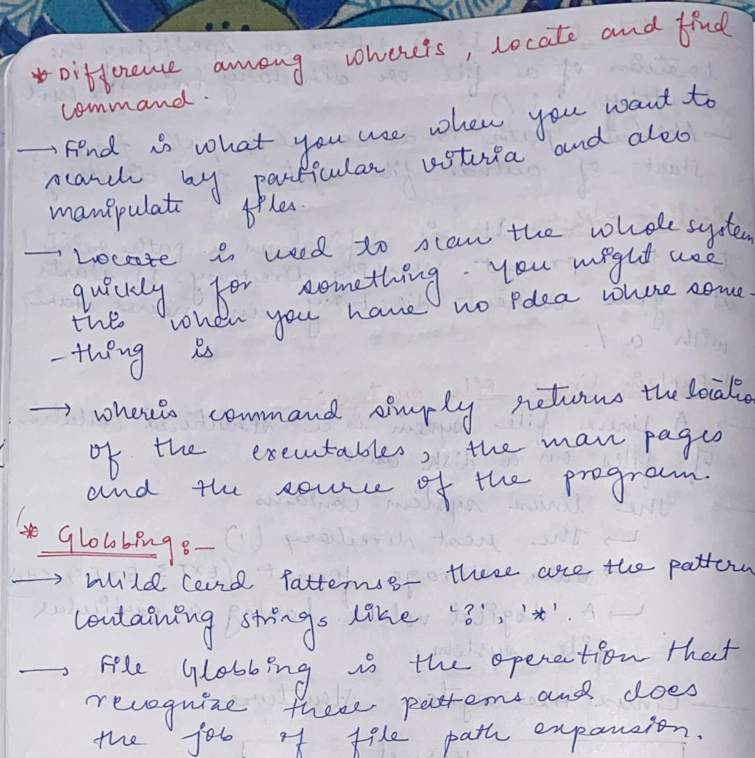 * Difference among whereis, locate and find
command.
→ Find is what you use when you want to
search by particular criteria and also
manipulate files.
→ Locate is used to scan the whole system
quickly for something. You might use
this when you have no idea where some-
-thing is
→ whereis command simply returns the location
of the executables, the man pages
and the source of the program.
* Globbing:-
→ Wild Card Patterns:- these are the pattern
containing strings like '?', '*'.
→ File Globbing is the operation that
recognize these patterns and does
the job of file path expansion.